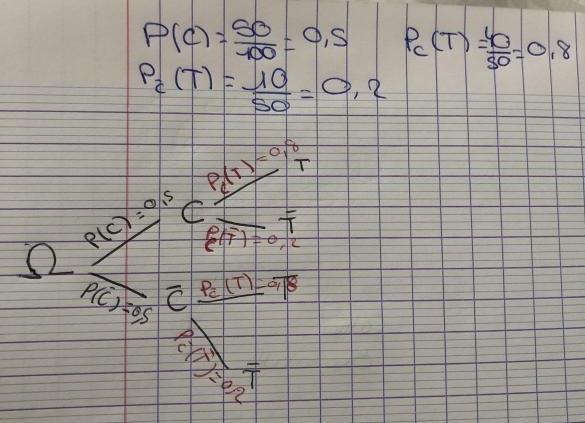 P(C) = 50/100 = 0,5 Pc(T) = 40/50 = 0,8
Pc̄(T) = 10/50 = 0,2
Pc(T) = 0,8 T
P(C) = 0,5 C
Pc(T̄) = 0,2 T̄
Ω
P(C̄) = 0,5 C̄ Pc(T) = 0,8 T
Pc̄(T̄) = 0,2 T̄